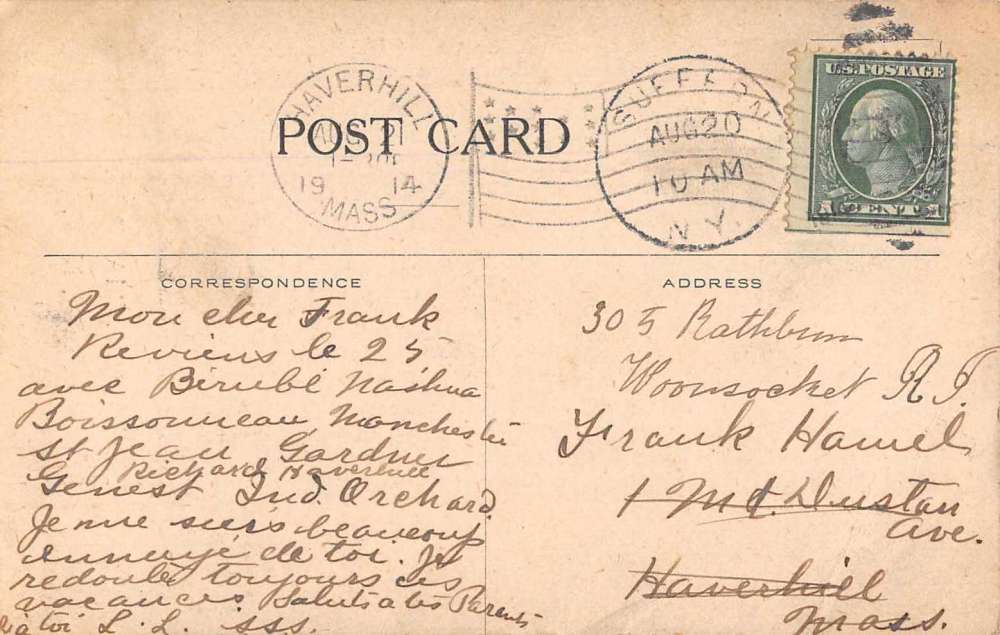 HAVERHILL
AUG 21
19 14
MASS
SUFFERN
AUG 20
10 AM
N.Y.
U.S. POSTAGE
1 CENT 1
POST CARD
CORRESPONDENCE
Mon cher Frank
Reviens le 25
avec Bérubé Nashua
Boissonneau Manchester
St Jean Gardner
Richard Haverhill
Genest Ind. Orchard.
Je me suis beaucoup
ennuyé de toi. Je
redoute toujours ces
vacances Saluts a tes Parents
à toi L. L. sss.
ADDRESS
305 Rathbun
Woonsocket R.I.
Frank Hamel
1 Mt. Dustan
ave.
Haverhill
Mass.